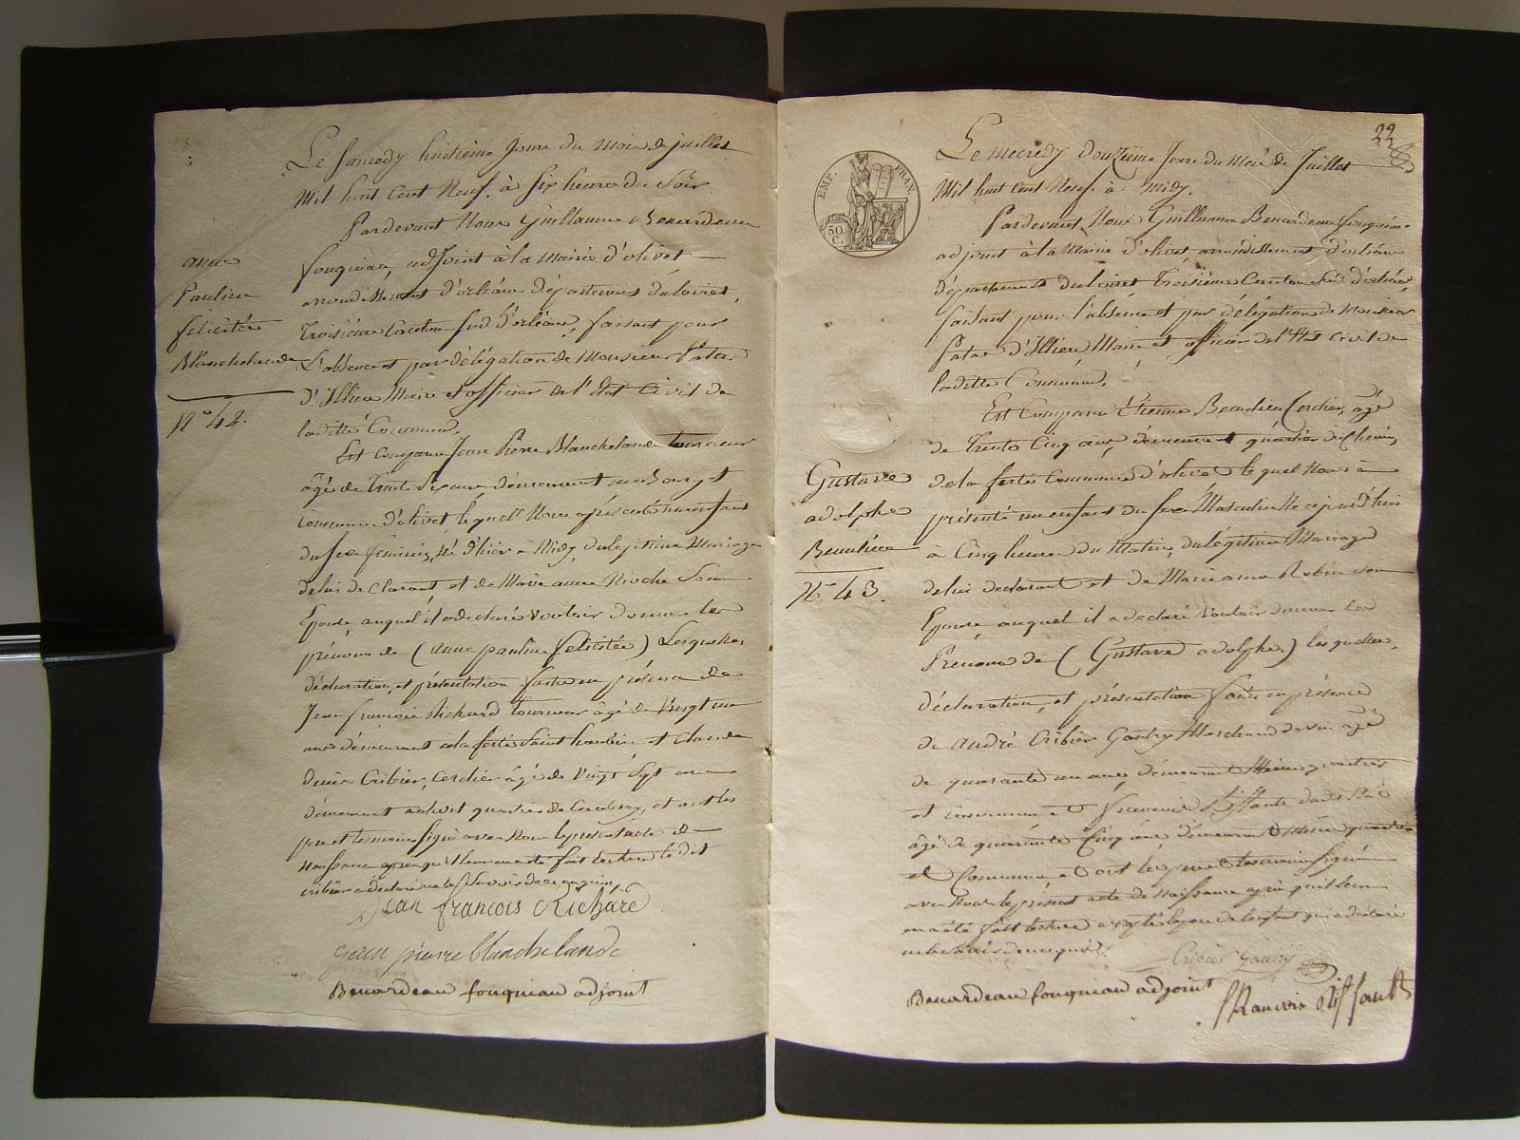 Le Samedy huitième Jour du Mois de juillet
Mil huit Cent Neuf. à Six heures du Soir
Pardevant Nous Guillaume Benardeau
fouqueau, adjoint à la Mairie d'olivet
arrondissement d'orléans département du loiret,
troisième Canton sud d'orléans, faisant pour
L'absence et par délégation de Monsieur Patas
d'Illiers Maire et officier de l'Etat Civil de
ladite Commune.
Est Comparu Jean Pierre Blanchelande tourneur
âgé de trente ans demeurant au bourg et
Commune d'olivet lequel Nous a présenté un enfant
du sexe féminin, Né d'hier à Midy, du légitime Mariage
de lui déclarant et de Marie anne Rioche Son
Epouse, auquel il a déclaré vouloir donner les
prénoms de (anne pauline félicitée) Lesquelles
déclaration et présentation faites en présence de
Jean françois Richard tourneur âgé de Vingt un
ans demeurant à la ferté Saint haubin et
Cribier, Cordier âgé de Vingt Sept ans
demeurant olivet quartier de et ont les
père et témoin Signé avec Nous le présent acte de
Naissance après qu'il leur en a été fait lecture le dit
cribier a déclaré ne le Savoir de ce enquis
Jean francois Richard
jean pierre blanchelande
Benardeau fouqueau adjoint
anne
Pauline
félicitée
Blanchelande
No 42.
22
EMP. FRAN.
50 C.
Le mecredy douzième Jour du Mois de Juillet
Mil huit Cent Neuf. à Midy.
Pardevant Nous Guillaume Benardeau fouqueau
adjoint à la Mairie d'olivet arrondissement d'orléans
département du loiret Troisième Canton Sud d'orléans,
faisant pour l'absence et par délégation de Monsieur
Patas d'Illiers Maire et officier de l'Etat Civil de
ladite Commune.
Est Comparu Etienne Beaulieu Cordier, âgé
de Trente Cinq ans, demeurant quartier du Chemin
de la ferté Commune d'olivet lequel Nous a
présenté un enfant du sexe Masculin Né ce jourd'huit
à Cinq heures du Matin, du légitime Mariage
de lui déclarant et de Marie anne Robin son
Epouse, auquel il a déclaré Vouloir donner les
Prénoms de (Gustave adolphe) lesquelles
déclaration et présentation faites en présence
de André Cribier Gaudry Marchand de vin âgé
de quarante un ans, demeurant Même quartier
et commune et francois Riffault
âgé de quarante Cinq ans demeurant même quartier
et Commune et ont les père et témoins Signé
avec Nous le présent acte de Naissance après qu'il leur
en a été fait lecture excepté le père de l'enfant qui a déclaré
ne le Savoir de ce enquis.
Cribier Gaudry
Benardeau fouqueau adjoint
francois Riffault
Gustave
adolphe
Beaulieu
No 43.